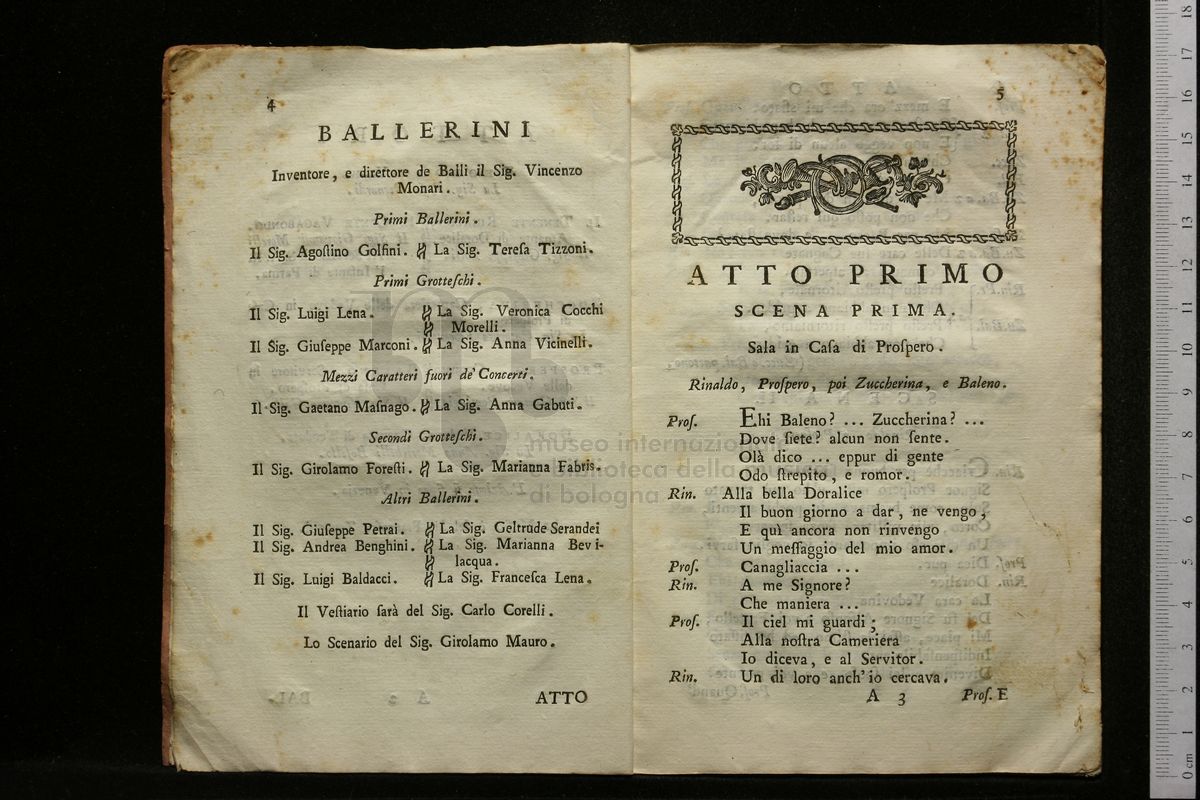 4
BALLERINI
Inventore, e direttore de Balli il Sig. Vincenzo
Monari.
Primi Ballerini.
Il Sig. Agoſtino Golfini. La Sig. Tereſa Tizzoni.
Primi Grotteſchi.
Il Sig. Luigi Lena. La Sig. Veronica Cocchi
Morelli.
Il Sig. Giuſeppe Marconi. La Sig. Anna Vicinelli.
Mezzi Caratteri fuori de' Concerti.
Il Sig. Gaetano Maſnago. La Sig. Anna Gabuti.
Secondi Grotteſchi.
Il Sig. Girolamo Foreſti. La Sig. Marianna Fabris.
Altri Ballerini.
Il Sig. Giuſeppe Petrai. La Sig. Geltrude Serandei
Il Sig. Andrea Benghini. La Sig. Marianna Bevi-
lacqua.
Il Sig. Luigi Baldacci. La Sig. Franceſca Lena.
Il Veſtiario ſarà del Sig. Carlo Corelli.
Lo Scenario del Sig. Girolamo Mauro.
ATTO
5
ATTO PRIMO
SCENA PRIMA.
Sala in Caſa di Proſpero.
Rinaldo, Proſpero, poi Zuccherina, e Baleno.
Proſ. Ehi Baleno? ... Zuccherina? ...
Dove ſiete? alcun non ſente.
Olà dico ... eppur di gente
Odo ſtrepito, e romor.
Rin. Alla bella Doralice
Il buon giorno a dar, ne vengo;
E quì ancora non rinvengo
Un meſſaggio del mio amor.
Proſ. Canagliaccia ...
Rin. A me Signore?
Che maniera ...
Proſ. Il ciel mi guardi;
Alla noſtra Cameriera
Io diceva, e al Servitor.
Rin. Un di loro anch' io cercava.
A 3 Proſ. E
museo internazionale
biblioteca della musica
di bologna